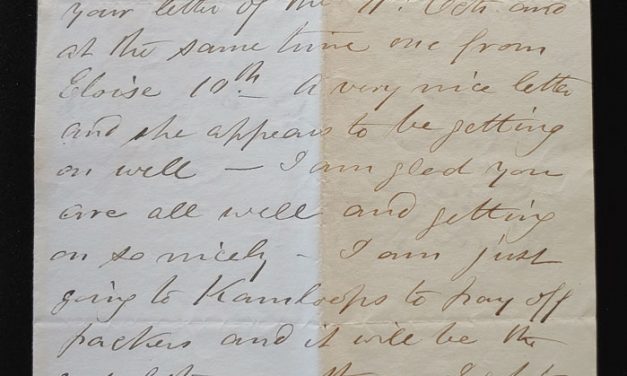 your letter of the 11th Oct. and
at the same time one from
Eloise 10th — A very nice letter
and she appears to be getting
on well — I am glad you
are all well and getting
on so nicely — I am just
going to Kamloops to pay off
packers and it will be the